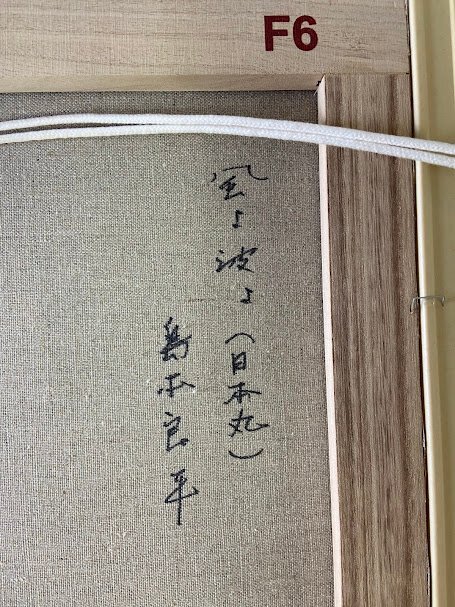 F6
風よ波よ（日本丸）
島本良平